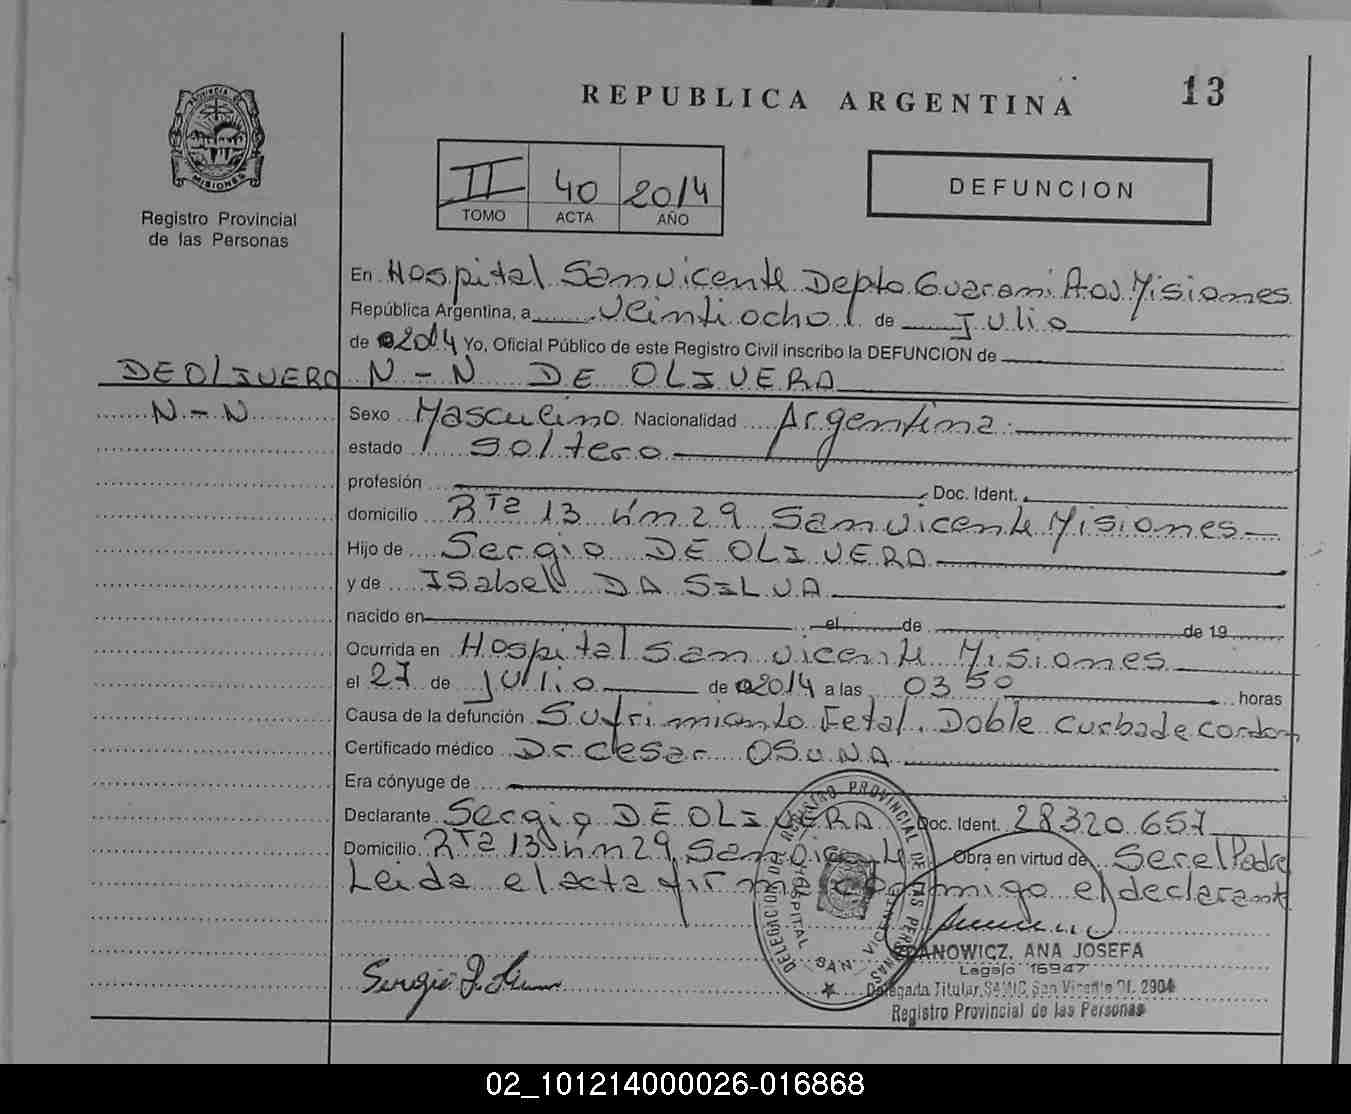 REPUBLICA ARGENTINA
13
PROVINCIA DE
MISIONES
Registro Provincial
de las Personas
II 40 2014
TOMO ACTA AÑO
DEFUNCION
En Hospital San vicente Depto Guarani Misiones
República Argentina, a veintiocho de Julio
de 2014 Yo, Oficial Público de este Registro Civil inscribo la DEFUNCION de
DE OLIVERA N-N DE OLIVERA
N-N Sexo Masculino Nacionalidad Argentina.
estado soltero
profesión Doc. Ident.
domicilio RTa 13 km 29 San vicente Misiones
Hijo de Sergio DE OLIVERA
y de ISabel DA SILVA
nacido en el de de 19
Ocurrida en Hospital San vicente Misiones
el 27 de Julio de 2014 a las 03 50 horas
Causa de la defunción Sufrimiento Fetal. Doble curba de cordon
Certificado médico Dr cesar OSUNA
Era cónyuge de
Declarante Sergio DE OLIVERA Doc. Ident. 28320.657
Domicilio RTa 13 km 29 San vicente Obra en virtud de Ser el Padre
Leida el acta firma conmigo el declarante
DELEGACION DEL REGISTRO PROVINCIAL DE LAS PERSONAS
HOSPITAL SAN VICENTE
ANA JOSEFA
Legajo 16947
Delegada Titular, SAMIC San Vicente Of. 2904
Registro Provincial de las Personas
02_101214000026-016868